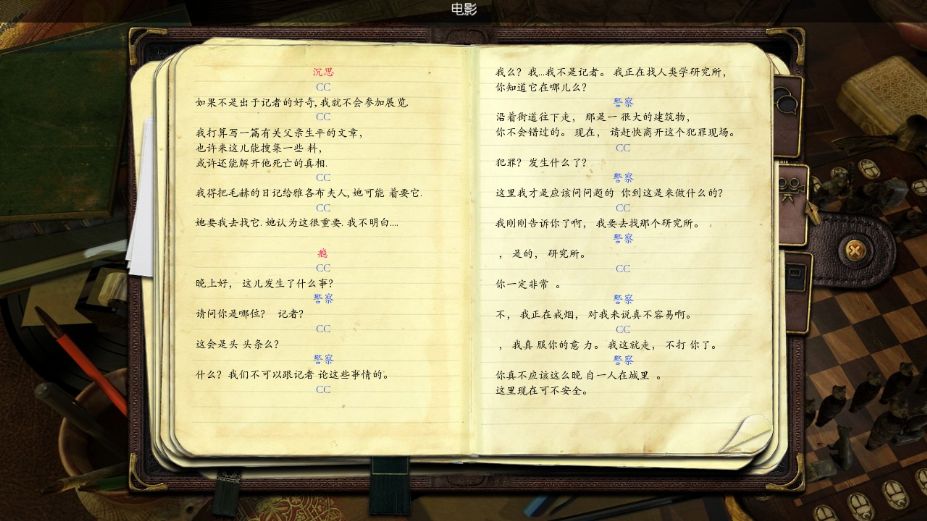 电影
沉思
CC
如果不是出于记者的好奇,我就不会参加展览.
CC
我打算写一篇有关父亲生平的文章,
也许来这儿能搜集一些 料,
或许还能解开他死亡的真相.
CC
我得把毛赫的日记给雅各布夫人,她可能 着要它.
CC
她要我去找它.她认为这很重要.我不明白....
瘾
CC
晚上好， 这儿发生了什么事？
警察
请问你是哪位？ 记者？
CC
这会是头 头条么？
警察
什么？我们不可以跟记者 论这些事情的。
CC
我么？我...我不是记者。 我正在找人类学研究所，
你知道它在哪儿么？
警察
沿着街道往下走， 那是一 很大的建筑物，
你不会错过的。 现在， 请赶快离开这个犯罪现场。
CC
犯罪？发生什么了？
警察
这里我才是应该问问题的 你到这是来做什么的？
CC
我刚刚告诉你了啊， 我要去找那个研究所。
警察
， 是的， 研究所。
CC
你一定非常 。
警察
不， 我正在戒烟， 对我来说真不容易啊。
CC
， 我真 服你的意 力。 我这就走， 不打 你了。
警察
你真不应该这么晚 自一人在城里 。
这里现在可不安全。